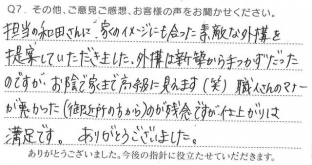 Q7. その他、ご意見ご感想、お客様の声をお聞かせください。
担当の和田さんに家のイメージにも合った素敵な外構を
提案していただきました。外構は新築からまっかずだった
のですが、お陰で家まで高級に見えます(笑) 職人さんのマナー
が悪かった(御近所の方から)のが残念ですが仕上がりは
満足です。ありがとうございました。
ありがとうございました。今後の指針に役立たせていただきます。